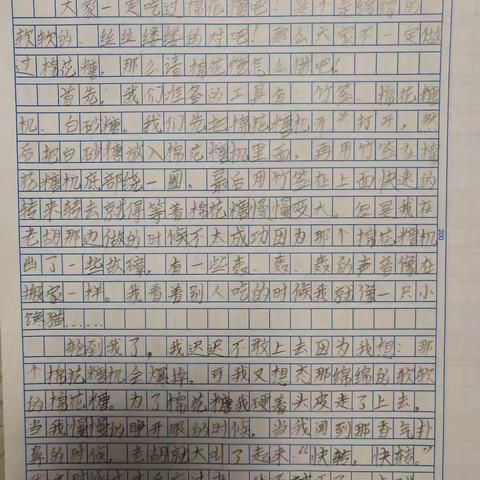 大家一定吃过棉花糖吧！是不是绵绵的
软软的、丝丝缕缕的对吧！那么大家不一定做
过棉花糖。那么请棉花糖怎么做吧！
首先，我们准备的工具有：竹签、棉花糖
机、白砂糖。我们先把棉花糖机开关打开，然
后把白砂糖放入棉花糖机里面，再用竹签在棉
花糖机底部绕一圈，最后用竹签在上面快速的
转来转去就得等着棉花糖慢慢变大。但是我在
老胡那边做的时候不太成功因为那个棉花糖机
出了一些故障，有一些轰、轰、轰的声音像在
搬家一样。我看着别人吃的时候我就像一只小
馋猫……
轮到我了，我迟迟不敢上去因为我想：那
个棉花糖机会爆掉，可我又想念那绵绵的软软
的棉花糖。为了棉花糖我硬着头皮走了上去，
当我慢慢的睁开眼的时候，当我闻到那香气扑
鼻的时候，老胡就大叫了起来“快转，快转。”
200